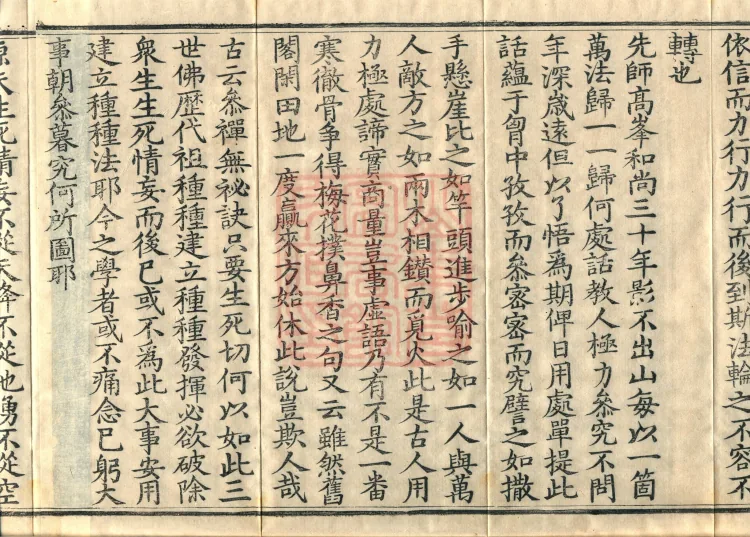 依信而力行力行而後到斯法輪之不容不
轉也
先師高峯和尚三十年影不出山每以一箇
萬法歸一一歸何處話教人極力叅究不問
年深歲遠但以了悟爲期俾日用處單提此
話蘊于胷中孜孜而叅密密而究譬之如撒
手懸崖比之如竿頭進步喻之如一人與萬
人敵方之如兩木相鑚而覓火此是古人用
力極處諦實商量豈事虛語乃有不是一番
寒徹骨爭得梅花撲鼻香之句又云雖然舊
閣閑田地一度贏來方始休此說豈欺人哉
古云叅禪無祕訣只要生死切何以如此三
世佛歷代祖種種建立種種發揮必欲破除
衆生生死情妄而後已或不為此大事安用
建立種種法耶今之學者或不痛念已躬大
事朝叅暮究何所圖耶
原夫生死情妄不從天降不從地勇不從空